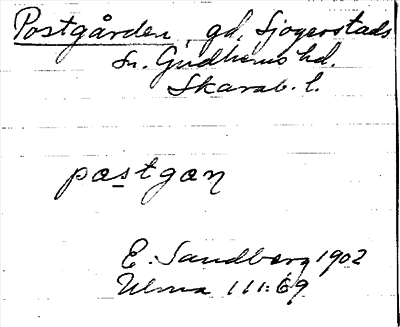 Postgården, gd, Sjogerstads
sn. Gudhems hd.
Skarab. l.
pastgan
E. Sandberg 1902
Ulma 111:69